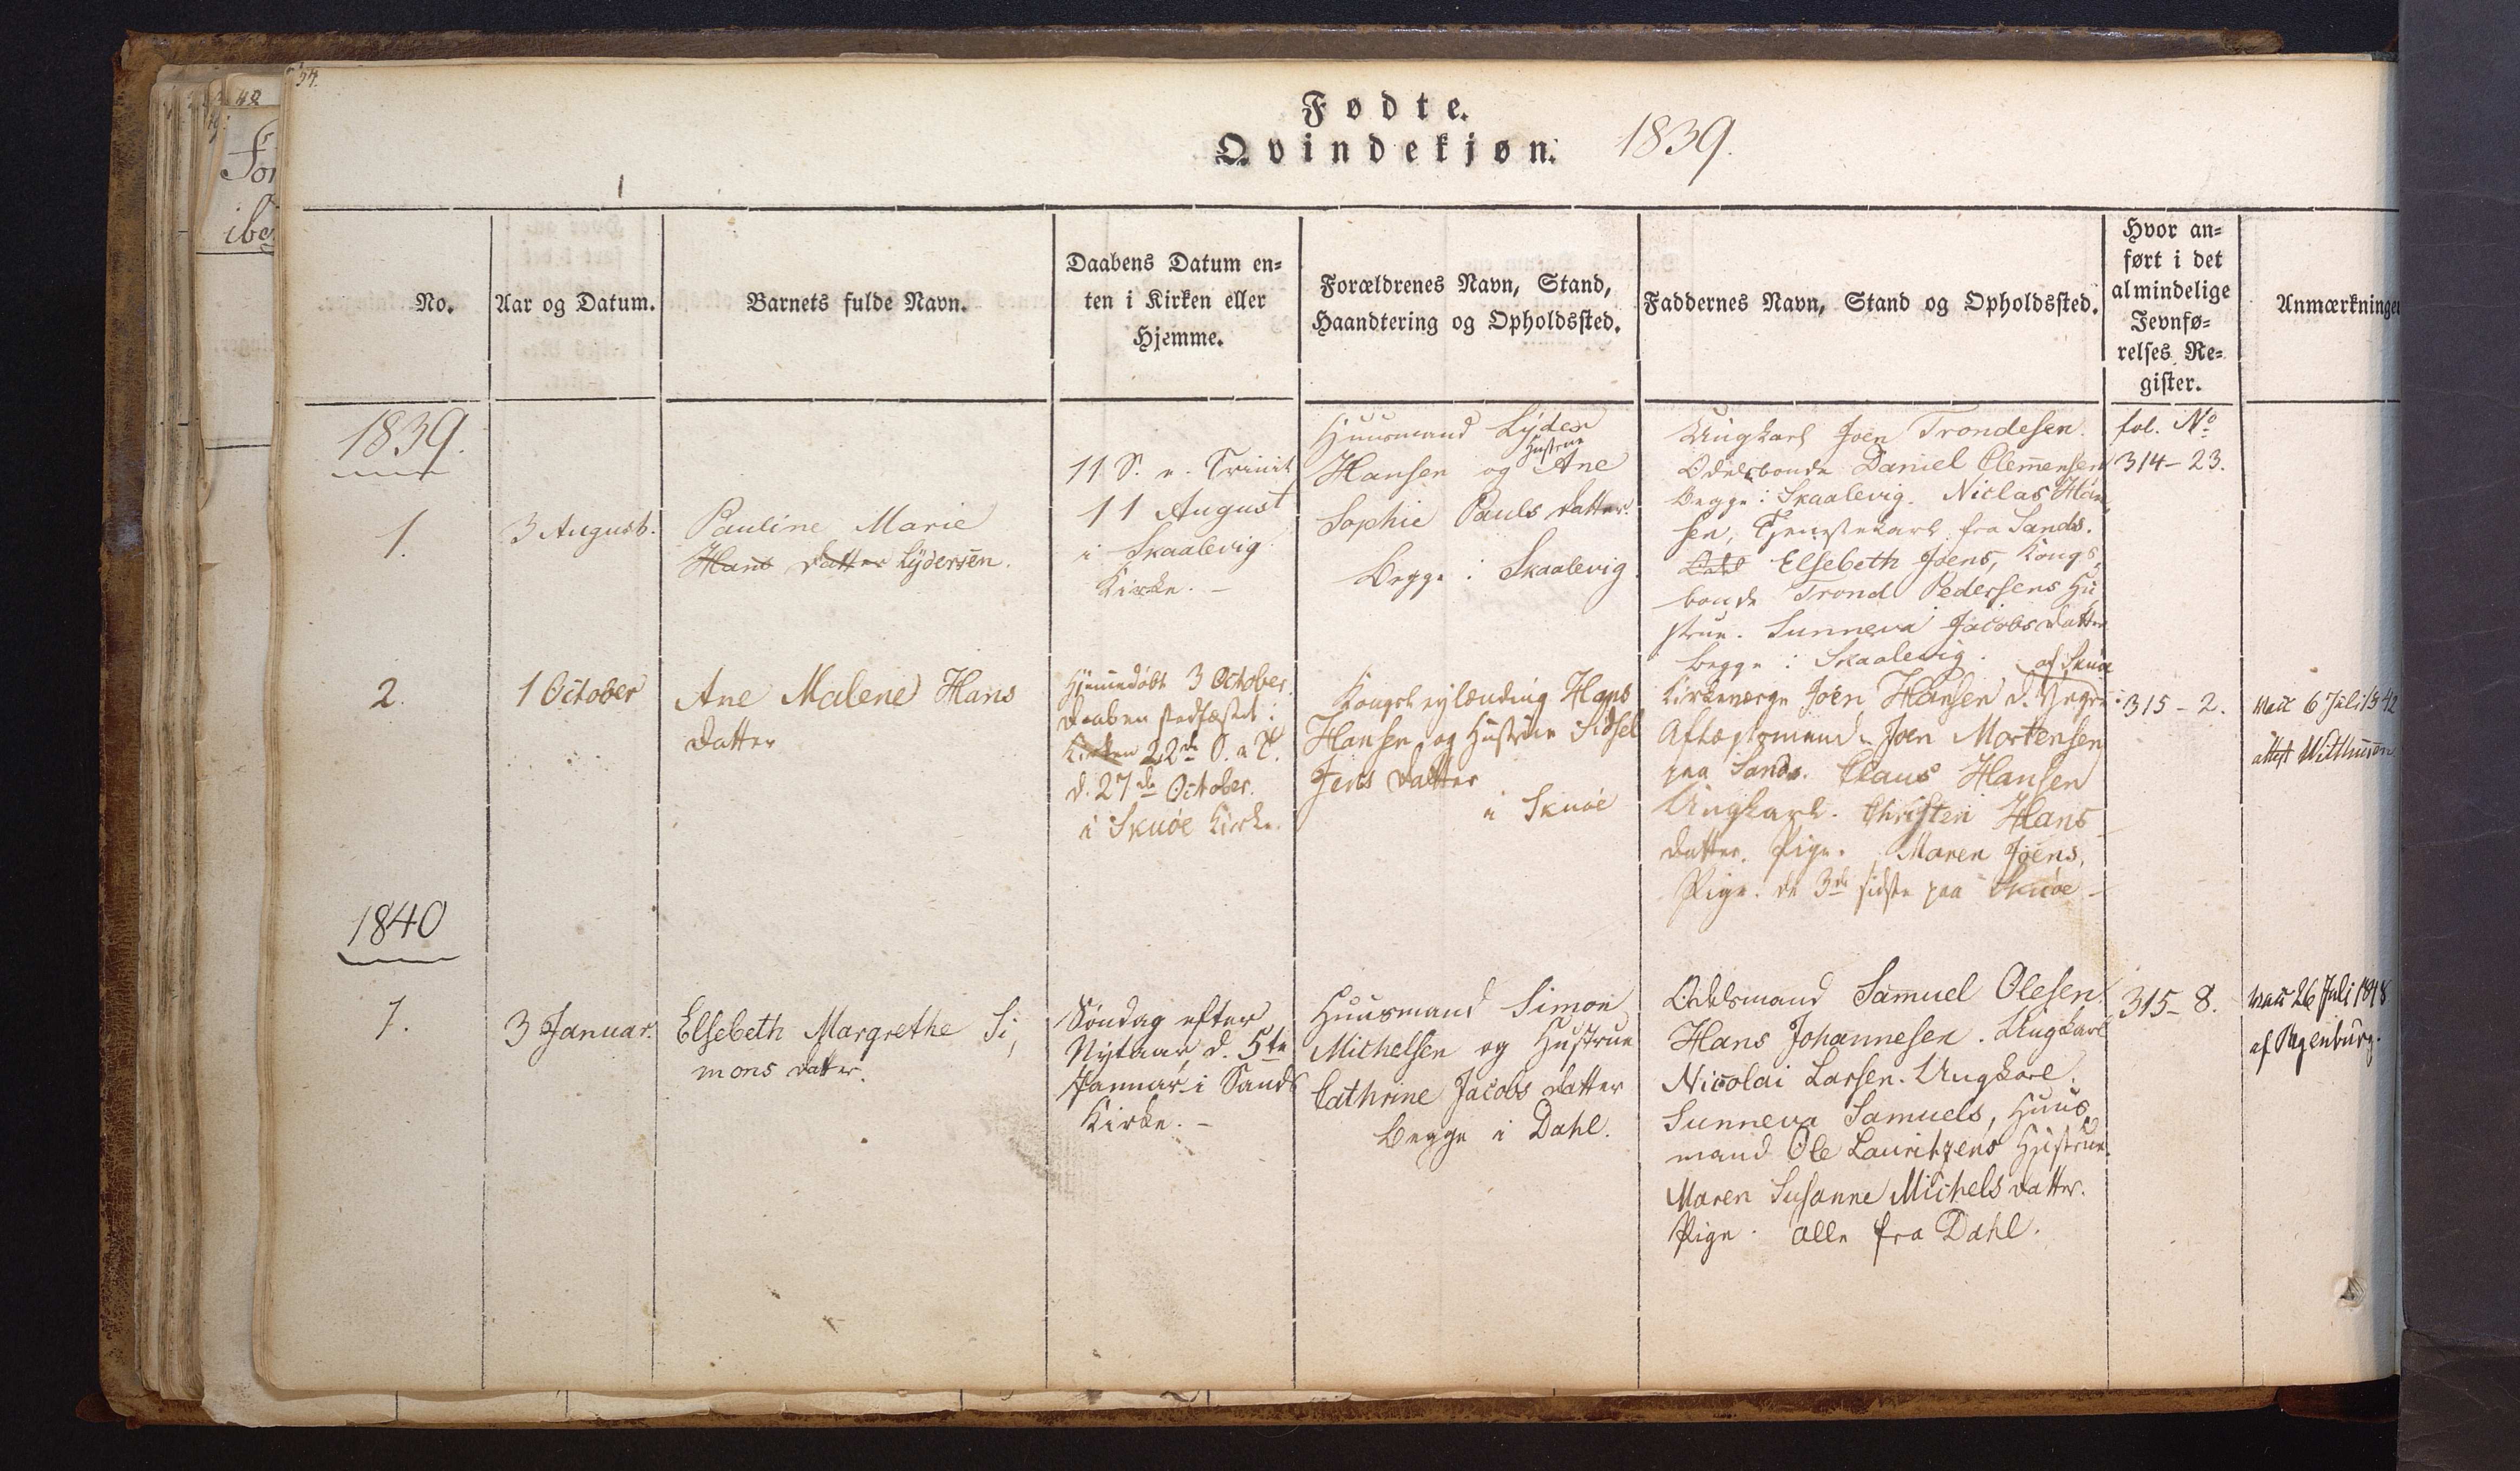 54.
Fødte.
Qvindekjøn. 1839.
No.
Aar og Datum.
Barnets fulde Navn.
Daabens Datum en=
ten i Kirken eller
Hjemme.
Forældrenes Navn, Stand,
Haandtering og Opholdssted.
Faddernes Navn, Stand og Opholdssted.
Hvor an=
ført i det
almindelige
Jevnfø=
relses Re=
gister.
Anmærkninge
1839.
1.
3 August.
Pauline Marie
Hans datter Lydersen.
11 S. e. Trinit
11 August
i Skaalevig
Kirke. -
Huusmand Lyder
Hansen og Hustrue Ane
Sophie Pauls datter.
Begge i Skaalevig.
Ungkarl Joen Trondesen.
Odelsbonde Daniel Clemensen
Begge i Skaalevig. Niclas Han
sen, Tjenestekarl fra Sands.
Elsebeth Joens, Kongs
bonde Trond Pedersens Hu
strue. Sunneva Jacobsdatter
begge i Skaalevig.
fol. No
314 - 23.
2.
1 October
Ane Malene Hans
datter
Hjemmedøbt 3 October.
Daaben stadfæstet i
Kirken 22de S. e. T.
d. 27de October.
i Skuøe Kirke.
Hans
Hansen og Hustrue Sidsel
Jens datter
i Skuøe
af Skuøe
Kirkeværge Joen Hansen
Joen Mortensen
paa Sands. Claus Hansen
Ungkarl. Christen Hans
datter. Pige. Maren Joens,
Pige. de 3de sidste paa Skuøe -
315 - 2.
Vacc 6 Juli 1842
attest
1840
1.
3 Januar.
Elsebeth Margrethe Si,
mons datter.
Søndag efter
Nytaar d. 5te
Januar i Sands
Kirke. -
Huusmand Simon
Michelsen og Hustrue
Cathrine Jacobs datter
begge i Dahl.
Odelsmand Samuel Olesen
Hans Johannesen. Ungkarl
Nicolai Larsen. Ungkarl.
Sunneva Samuels, Huus
mand Ole Lauritzens Hustrue.
Maren Susanne Michels datter.
Pige. alle fra Dahl.
315 - 8.
Vacc 26 Juli 1848
af